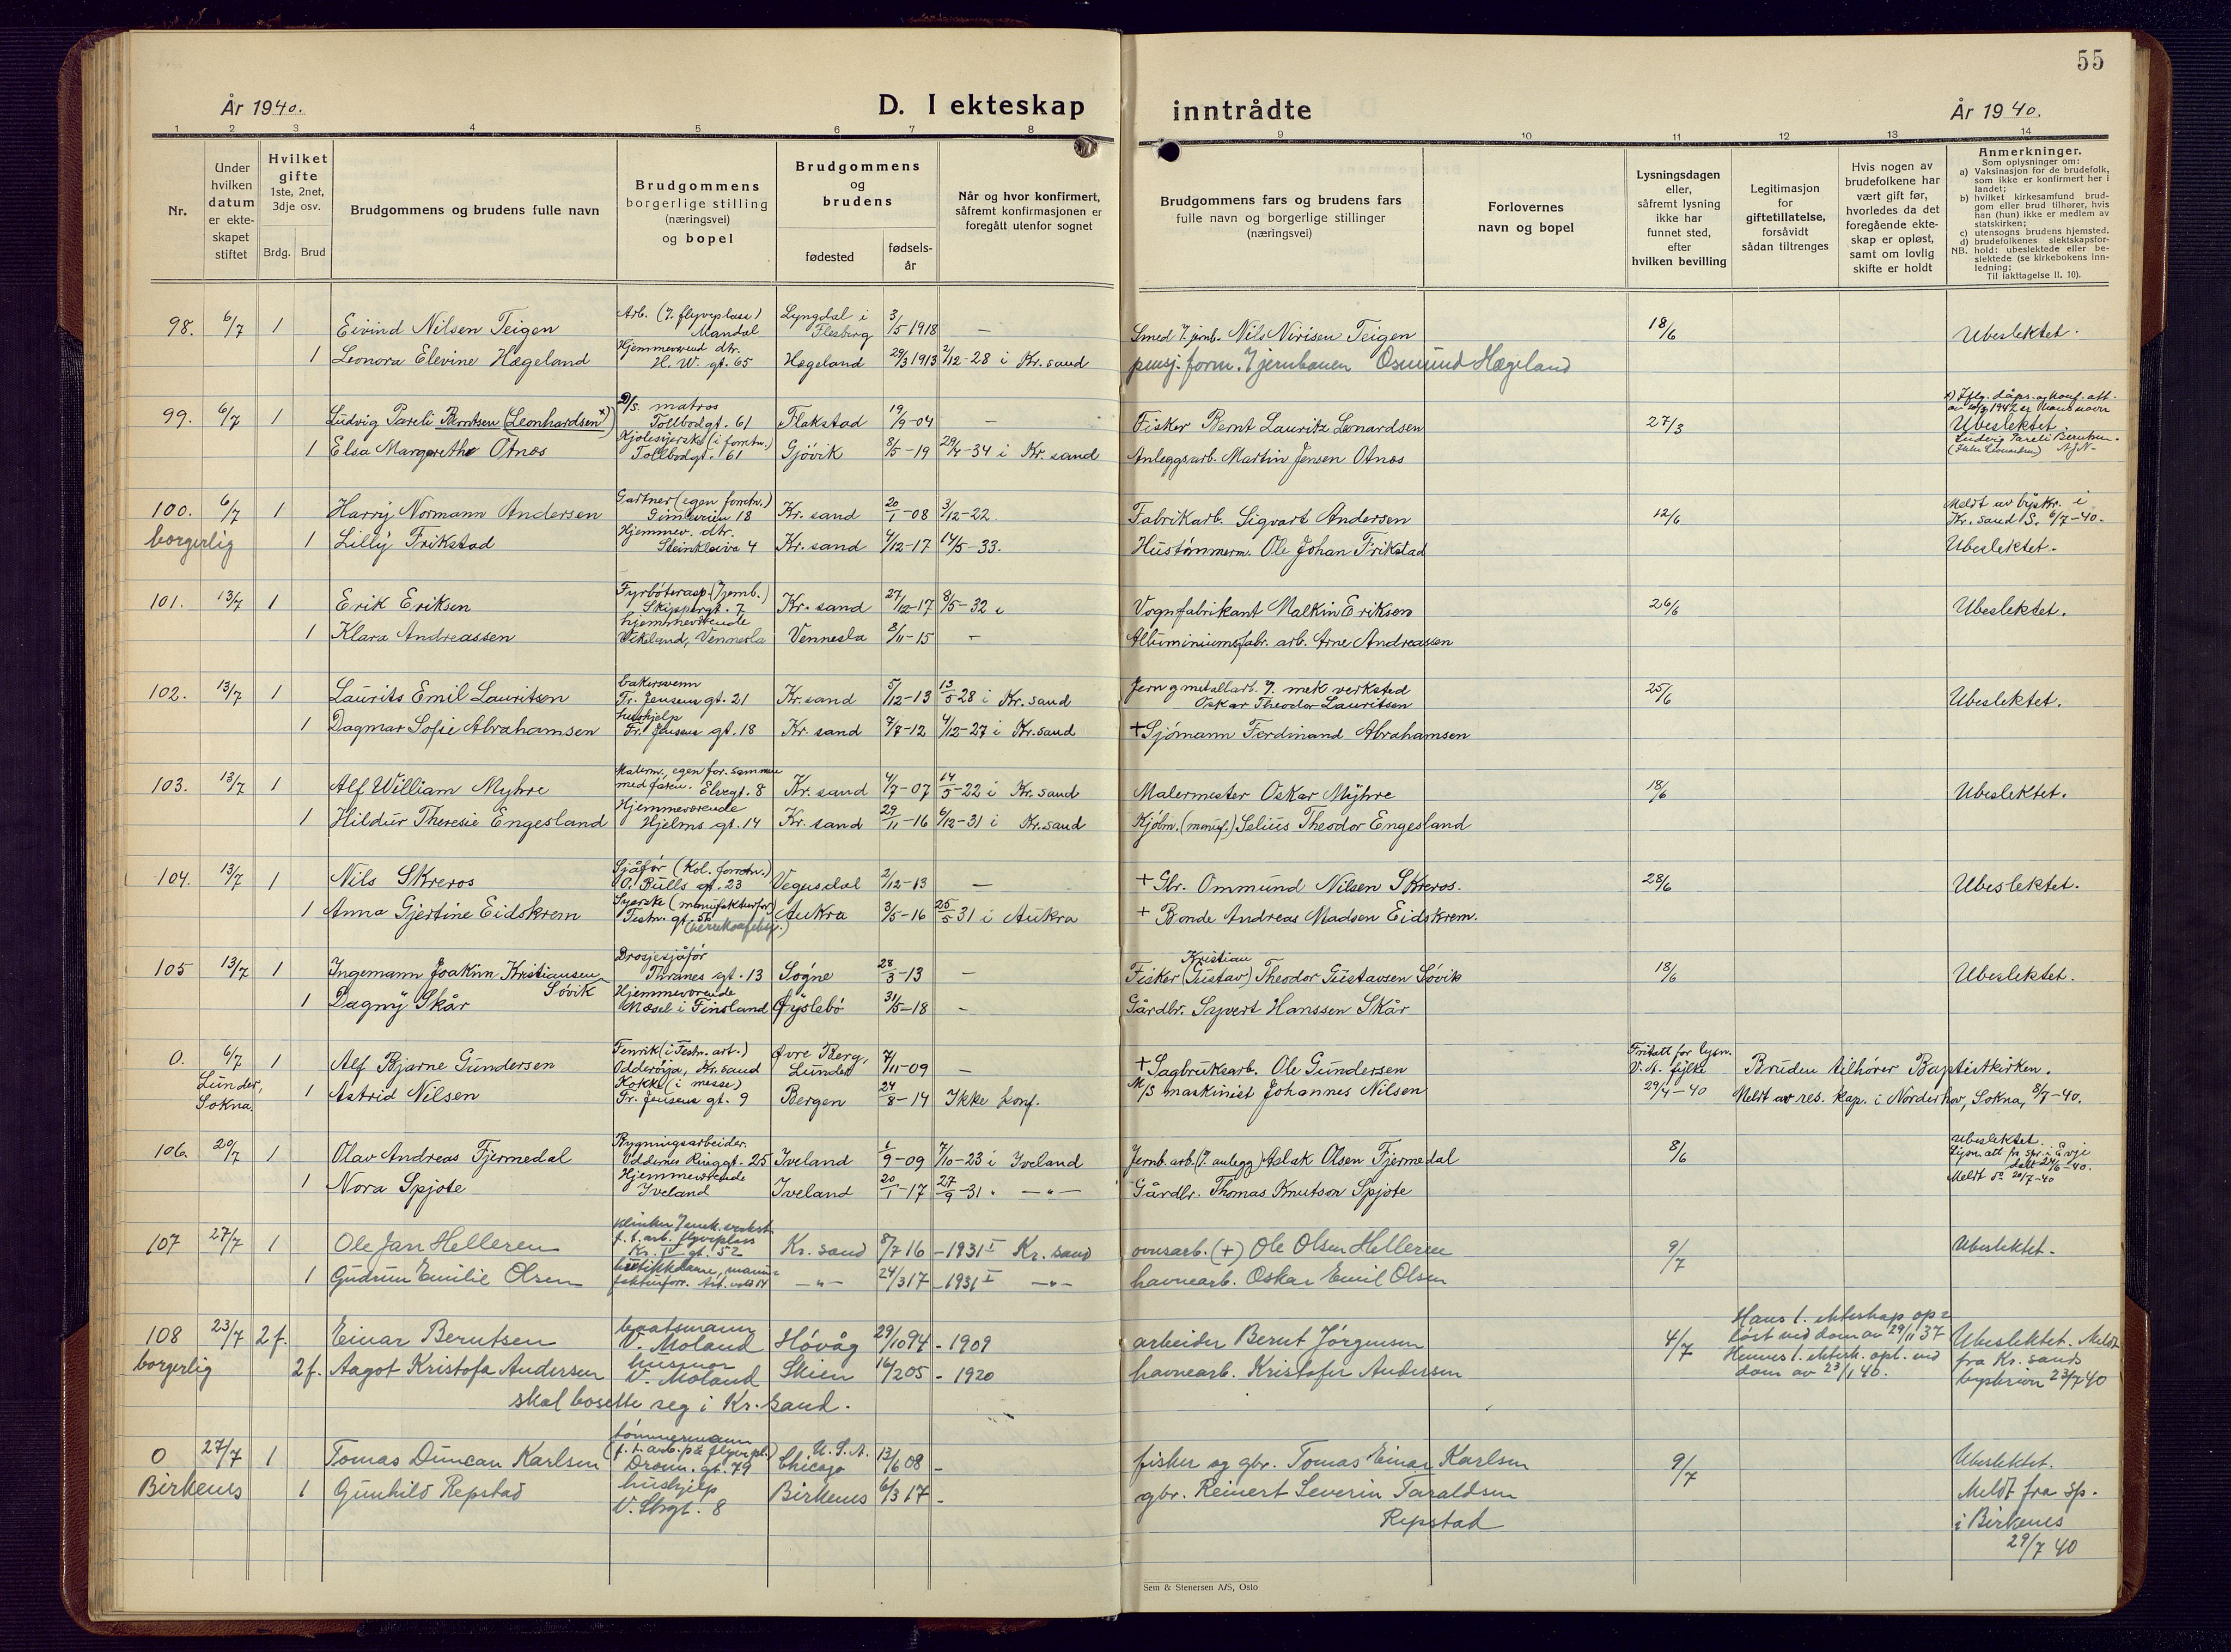 55
År 1940.
D. I ekteskap inntrådte
År 1940.
1 2 3 4 5 6 7 8 9 10 11 12 13 14
Nr.
Under hvilken datum er ekte-skapet stiftet
Hvilket gifte 1ste, 2net, 3dje osv.
Brdg. Brud
Brudgommens og brudens fulle navn
Brudgommens borgerlige stilling (næringsvei) og bopel
Brudgommens og brudens
fødested
fødsels-år
Når og hvor konfirmert, såfremt konfirmasjonen er foregått utenfor sognet
Brudgommens fars og brudens fars fulle navn og borgerlige stillinger (næringsvei)
Forlovernes navn og bopel
Lysningsdagen eller, såfremt lysning ikke har funnet sted, efter hvilken bevilling
Legitimasjon for giftetillatelse, forsåvidt sådan tiltrenges
Hvis nogen av brudefolkene har vært gift før, hvorledes da det foregående ekte-skap er opløst, samt om lovlig skifte er holdt
Anmerkninger.
Som oplysninger om:
a) Vaksinasjon for de brudefolk, som ikke er konfirmert her i landet;
b) hvilket kirkesamfund brud-gom eller brud tilhører, hvis han (hun) ikke er medlem av statskirken;
c) utensogns brudens hjemsted.
d) brudefolkenes slektskapsfor-
NB. hold: ubeslektede eller be-slektede (se kirkebokens inn-ledning;
Til iakttagelse II. 10).
98. 6/7 1 Eivind Nilsen Teigen Arb. (v. flyveplass) Mandal Lyngdal i Flesberg 3/5 1918 — Smed v. jernb. Nils Nirisen Teigen 18/6 Ubeslektet.
1 Leonora Elevine Hægeland Hjemmeværend dtr. H. W. gt. 65 Hægeland 29/3 1913 2/12-28 i Kr. sand pensj. form. v jernbanen Osmund Hægeland
99. 6/7 1 Ludvig Pareli Berntsen (Leonhardsen x) D/S. matros Tollbodgt. 61 Flakstad 19/9-04 — Fisker Bernt Lauritz Leonardsen 27/3 x) Iflg. dåps- og konf. att. Ubeslektet.
Ludvig Pareli Berntsen.
1 Elsa Margarethe Otnes Kjolesyerske (i forretn.) Tollbodgt. 61 Gjövik 8/5-19 29/4-34 i Kr. sand Anleggsarb. Martin Jensen Otnes
100. 6/7 1 Harry Normann Andersen Gartner (egen forretn.) Gimleveien 18 Kr. sand 20/1-08 3/12-22. Fabrikarb. Sigvart Andersen 12/6 Meldt av byskr. i Kr. sand S. 6/7-40.
borgerlig 1 Lilly Frikstad Hjemmev. dtr. Steinkleiva 4 Kr. sand 4/12-17 14/5-33. Hustömmerm. Ole Johan Frikstad Ubeslektet.
101. 13/7 1 Erik Eriksen Fyrböterasp. (v jernb.) Skippergt. 7 Kr. sand 27/12-17 8/5-32 i Vognfabrikant Malkin Eriksen 26/6 Ubeslektet.
1 Klara Andreassen hjemmeværende Vikeland, Vennesla Vennesla 8/11-15 — Alluminiumsfabr. arb. Arne Andreassen
102. 13/7 1 Laurits Emil Lauritsen bakersvenn Fr. Jensens gt. 21 Kr. sand 5/12-13 13/5 28 i Kr. sand Jern og metallarb. v. mek verksted Oskar Theodor Lauritsen 25/6 Ubeslektet.
1 Dagmar Sofie Abrahamsen hushjelp Fr. Jensens gt. 18 Kr. sand 7/7-12 4/12-27 i Kr. sand + Sjömann Ferdinand Abrahamsen
103. 13/7 1 Alf William Myhre Malerm., egen for. sammen med faren. Elvegt. 8 Kr. sand 4/7-07 14/5-22 i Kr. sand Malermester Oskar Myhre 18/6 Ubeslektet.
1 Hildur Theresie Engesland Hjemmeværende Hjelms gt. 14 Kr. sand 29/11-16 6/12-31 i Kr. sand Kjölm. (manuf.) Selius Theodor Engesland
104. 13/7 1 Nils Skreros Sjåför (Kol. forretn.) O. Bulls gt. 23 Vegusdal 2/12-13 — + Gbr. Ommund Nilsen Skreros. 28/6 Ubeslektet.
1 Anna Gjertine Eidskrem Syerske (manufakturfor) Festn. gt. 56 Aukra 3/5-16 25/5 31 i Aukra + Bonde Andreas Madsen Eidskrem.
105 13/7 1 Ingemann Joakim Kristiansen Sövik Drosjesjåför Thranes gt. 13 Sogne 28/3-13 — Fisker Kristian (Gustav) Theodor Gustavsen Sövik 18/6 Ubeslektet.
1 Dagny Skår Hjemmeværende Mæsel i Finsland Öyslebö 31/5-18 - Gårdbr. Syvert Hanssen Skår
0. 6/7 1 Alf Bjarne Gundersen Fenrik (i Festn. art.) Odderöya, Kr. sand Övre Berg, Lunder 7/11-09 — + Sagbruksarb. Ole Gundersen Fritatt for lysn. V. A. fylke 29/4-40 Bruden tilhörer Baptistkirken.
Lunder, Sokna. 1 Astrid Nilsen Kokke (i messe) Fr. Jensens gt. 9 Bergen 24/8-14 Ikke konf. M/S maskinist Johannes Nilsen Meldt av res. kap. i Norderhov, Sokna, 8/7-40.
106. 20/7 1 Olav Andreas Fjermedal Bygningsarbeider. Oddernes Ringgt. 25 Iveland 1/9-09 7/10-23 i Iveland Jernb. arb. (v. anlegg) Aslak Olsen Fjermedal 8/6 Ubeslektet.
Lysn. att fra spr. i Evje datt 24/6-40.
1 Nora Spjote Hjemmeværende Iveland Iveland 20/1-17 27/9-31 " —"— Gårdbr. Thomas Knutson Spjote Meldt 20/7-40
107 27/7 1 Ole Jan Helleren f. t. arb. flyveplass Kr. IV gt. 52 Kr. sand 8/7 16 -1931 I Kr. sand ovnsarb. (+) Ole Olsen Helleren 9/7 Ubeslektet.
1 Gudrun Emilie Olsen butikkdame, manu=fakturforr. Art. vold 14 —"— 24/3 17 -1931 I —"— havnearb. Oskar Emil Olsen
108 23/7 2 f. Einar Berntsen baatsmann V. Moland Hövåg 29/10 94 - 1909 arbeider Bernt Jörgensen 4/7 Hans 1. ekteskap op=löst ved dom av 29/11 37 Ubeslektet. Meldt fra Kr. sands byskriver 23/7 40
borgerlig 2 f. Aagot Kristofa Andersen husmor V. Moland Skien 16/2 05 - 1920 havnearb. Kristofer Andersen Hennes 1. ektesk. opl. ved dom av 23/1 40.
skal bosette seg i Kr. sand.
0 27/7 1 Tomas Duncan Karlsen tömmermann (f. t. arb. på flyvepl.) Dronn. gt. 79 U. S. A. Chicago 13/6 08 - fisker og gbr. Tomas Einar Karlsen 9/7 Ubeslektet.
Birkenes 1 Gunhild Repstad hushjelp V. Strgt. 8 Birkenes 6/3 17 - gbr. Reinert Severin Taraldsen Repstad Meldt fra sp. i Birkenes 29/7 40
Sem & Stenersen A/S, Oslo